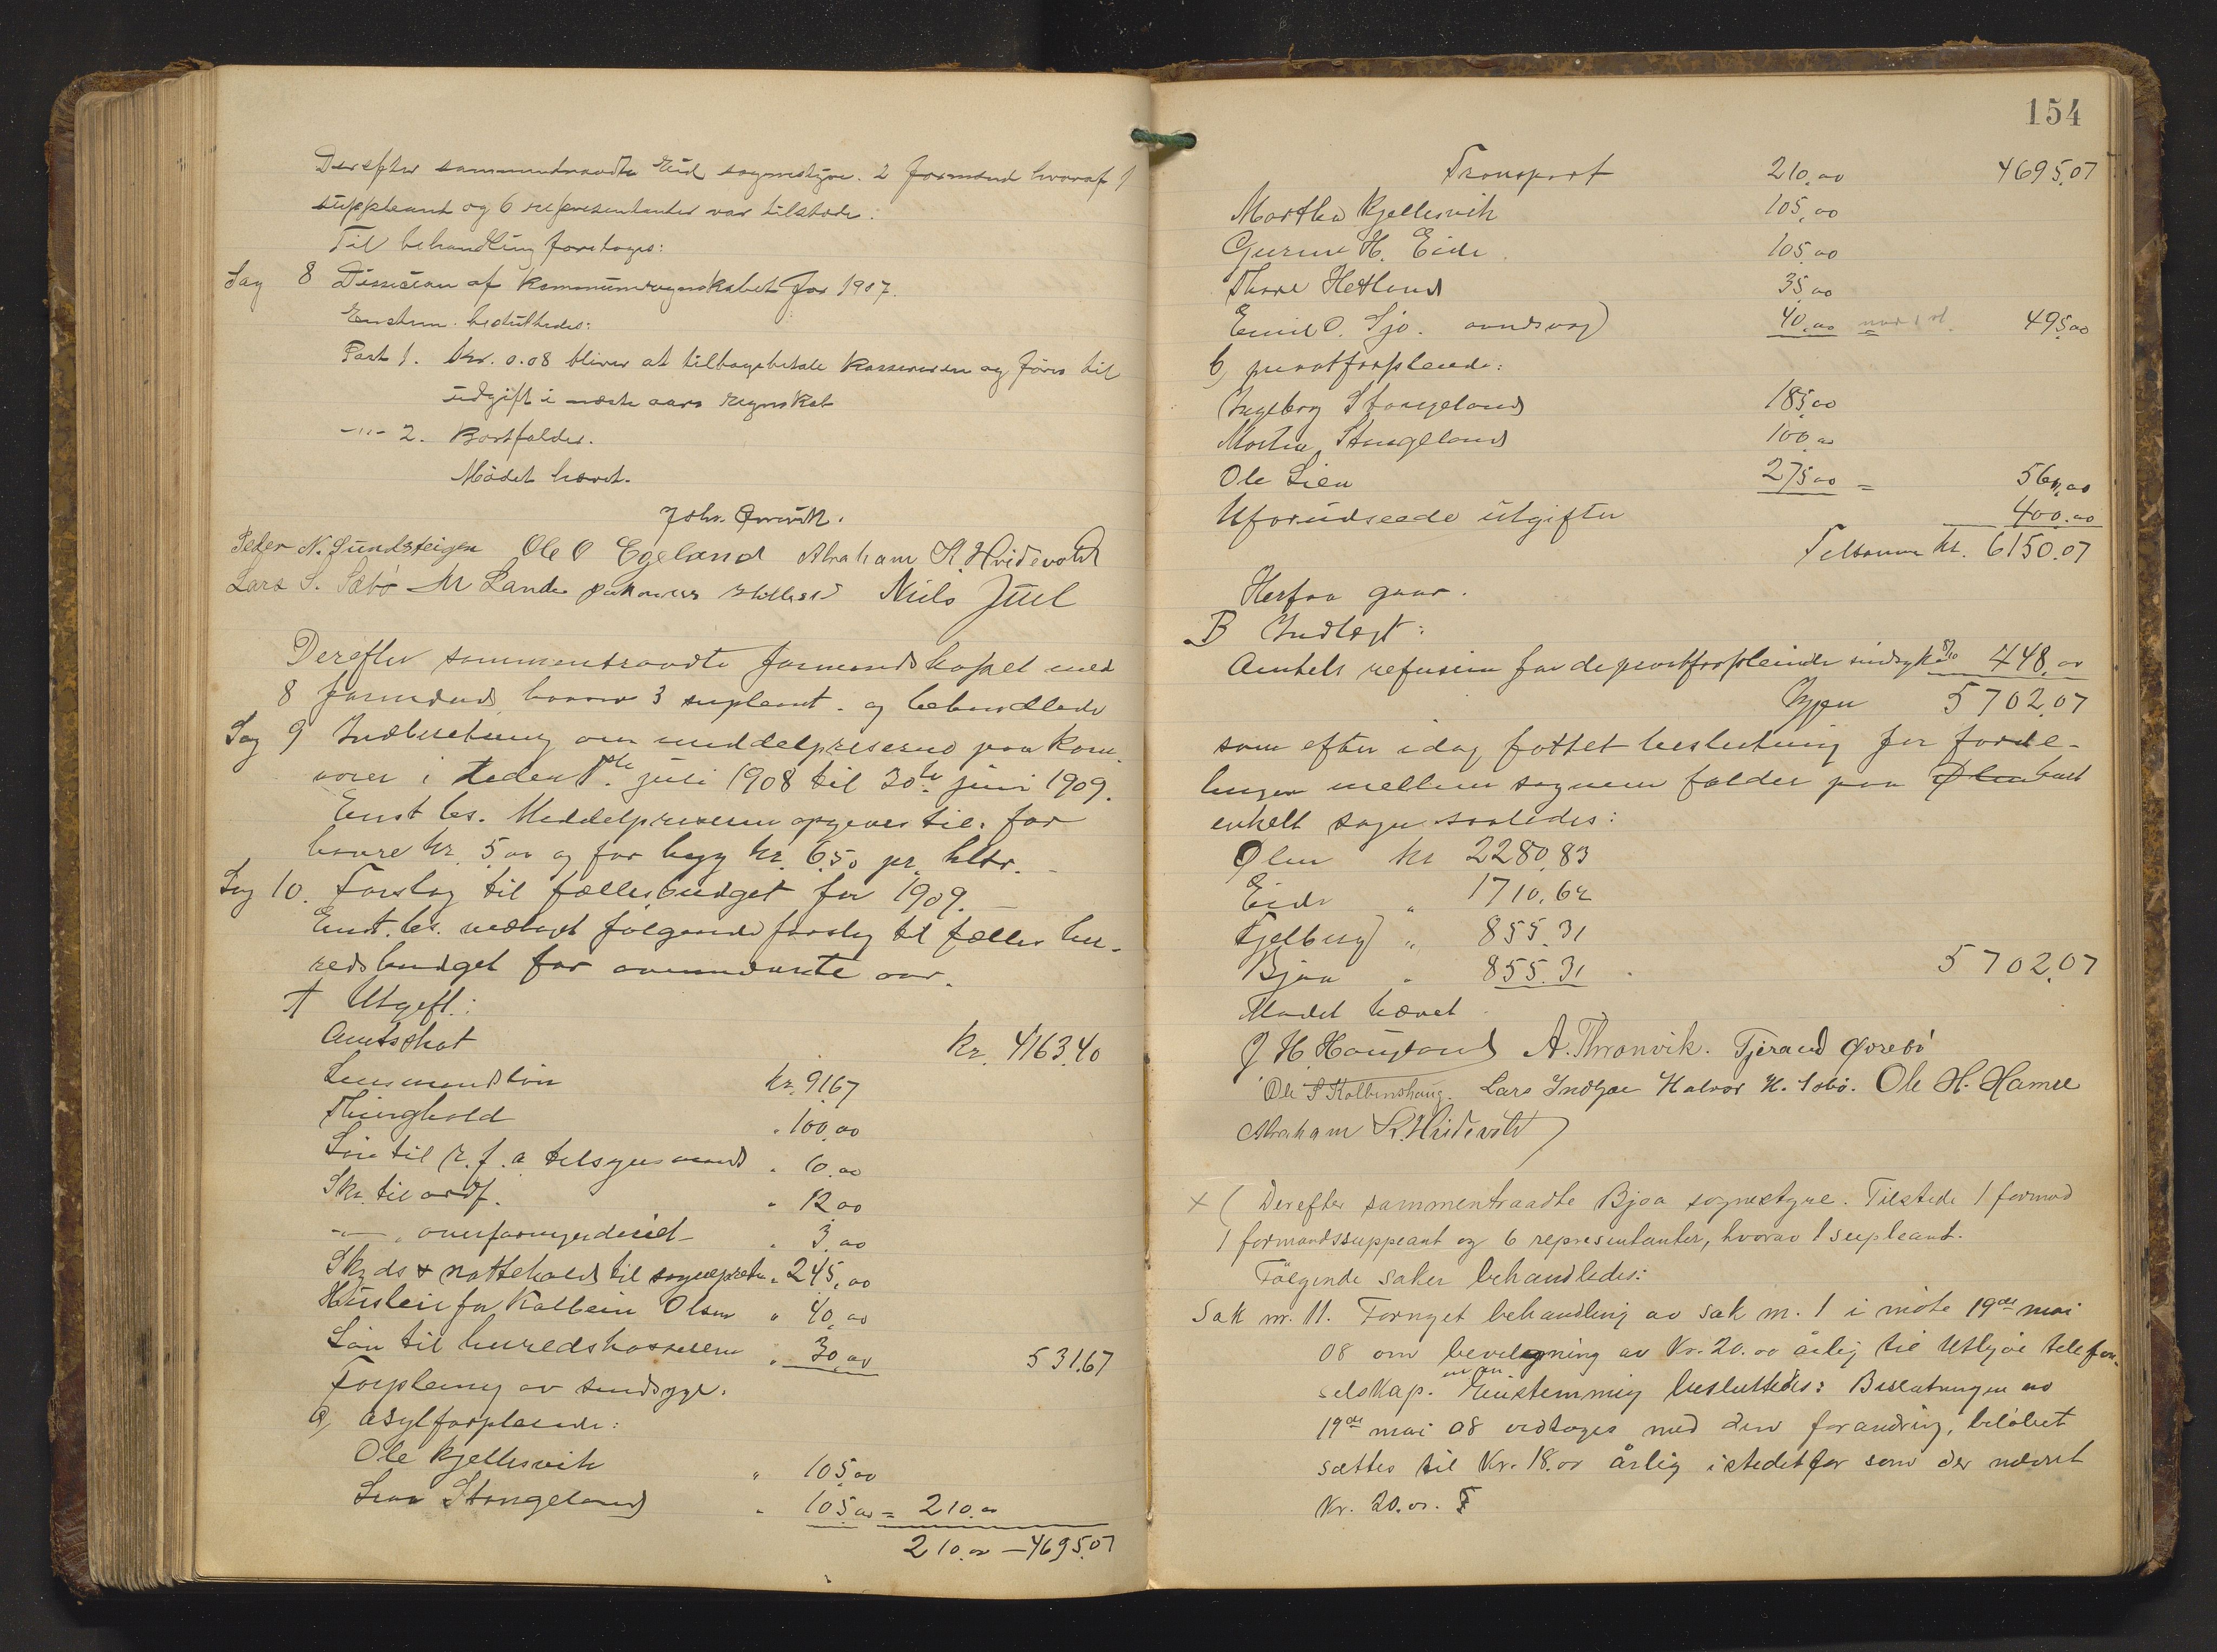 Derefter sammentraadte Eid sognestyre. 2 formænd hvoraf 1
suppleant og 6 representanter var tilstede:
Til behandling foretoges:
Sag 8 Desision af Kommuneregnskabet for 1907.
Enstem. besluttedes:
Post 1. Kr. 0.08 bliver at tilbagebetale Kassereren og føres til
udgift i næste aars regnskab
-"- 2. Bortfalder.
Mødet hævet.
Johs. Ørevik.
Peder N. Sundsteigen Ole O Egeland Abraham K. Hvidevold
Lars S. Sæbø M Lande Niels Juel
Derefter sammentraadte formandskapet med
8 formænd hvorav 3 supleant. og behandlede
Sag 9 Indberetning om middelpriserne paa korn
varer i tiden 1ste juli 1908 til 30te juni 1909.
Enst bes. Middelpriserne opgives til for
havre kr. 5,00 og for byg kr. 6,50 pr. hltr.
Sag 10. Forslag til fællesbudget for 1909.
Enst. bes. vedtoges følgende forslag til fælles her-
redsbudget for ovennævnte aar.
A Utgift:
Amtsskat Kr. 4163,40
Lensmandsløn kr. 91,67
Thinghold " 100,00
Løn til k.f.a tilsynsmand " 10,00
Skr. til ordf. " 12,00
-"- overformynderiet " 3,00
Skyds & nattehold til sogneprest " 245,00
Husleie for Kolbein Olsen " 40,00
Løn til herredskasseren " 30,00 531,67
Forpleining av sindsyge.
a, asylforpleiende:
Ole Kjellesvik " 105,00
Stangeland " 105,00 = 210,00
210,00 — 4695,07
154
Transport 210,00 4695,07
Martha Kjellesvik 105,00
Gurine H. Eide 105,00
Thore Hetland 35,00
Emil O. Sjo. aandsvag) 40,00 = 495,00
b, privatforpleiede:
Ingeborg Stangeland 185,00
Martha Stangeland 100,00
Ole Lien 275,00 = 560,00
Uforudseede utgifter 400,00
Tilsammen kr. 6150,07
Herfra gaar.
B Indtægt:
Amtets refusion for de privatforpleiede sindsyke 8/10 448,00
Igjen 5702,07
som efter idag fattet beslutning for forde-
lingen mellem sognene falder paa Ølen hvert
enkelt sogn saaledes:
Ølen kr 2280,83
Eide " 1710,62
Fjelberg " 855.31
Bjoa " 855.31 5702,07
Mødet hævet
J H. Haugland A. Thronvik. Tjerand Ørebø
Ole S Kolbenshaug. Lars Indbjoe Halvor H. Sæbø. Ole H. Hamre
Abraham K. Hvidevold
x ( Derefter sammentraadte Bjoa sognestyre. Tilstede 1 formand
1 formandssuppeant og 6 representanter, hvorav 1 supleant.
Følgende saker behandledes:
Sak nr. 11. Fornyet behandling av sak nr. 1 i møte 19de mai
08 om bevilgning av Kr. 20.00 årlig til Utbjoe telefon-
selskap. Enstemmig besluttedes: Beslutningen av
19de mai 08 vedtages med den forandring, beløbet
sættes til Kr. 18.00 årlig istedetfor som der nævnt
Kr. 20.00.